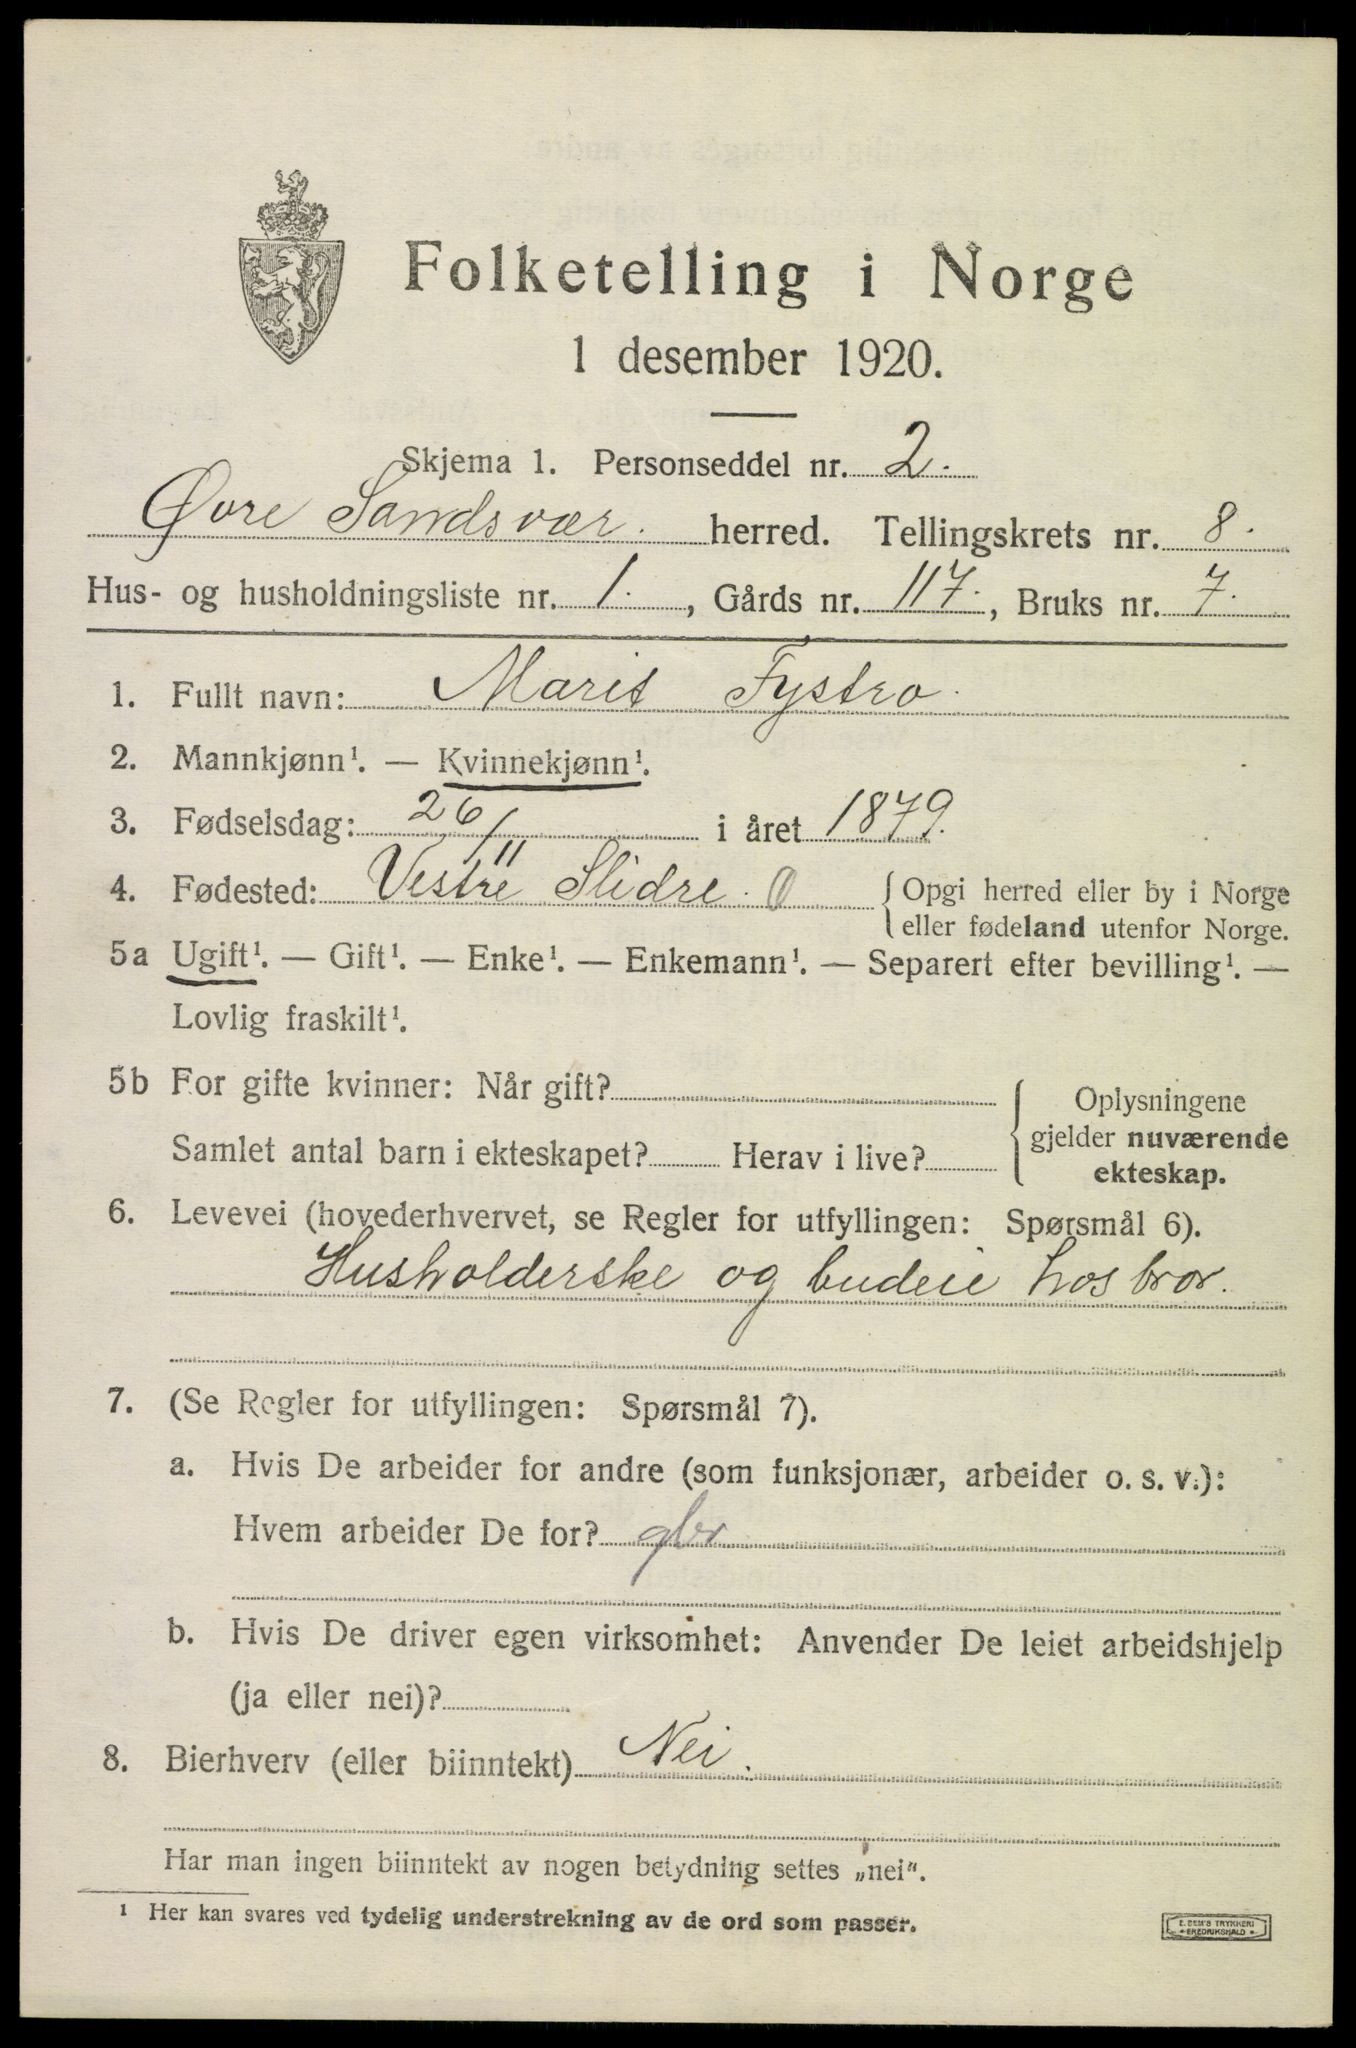 Folketelling i Norge
1 desember 1920.
Skjema 1. Personseddel nr. 2.
Øvre Sandsvær. herred. Tellingskrets nr. 8.
Hus- og husholdningsliste nr. 1., Gårds nr. 117., Bruks nr. 7.
1. Fullt navn: Marit Fystro.
2. Mannkjønn¹. — Kvinnekjønn¹.
3. Fødselsdag: 26/11 i året 1879.
4. Fødested: Vestre Slidre. 0 { Opgi herred eller by i Norge
eller fødeland utenfor Norge.
5a Ugift¹. — Gift¹. — Enke¹. — Enkemann¹. — Separert efter bevilling¹. —
Lovlig fraskilt¹.
5b For gifte kvinner: Når gift?
Samlet antal barn i ekteskapet? Herav i live?
{ Oplysningene
gjelder nuværende
ekteskap.
6. Levevei (hovederhvervet, se Regler for utfyllingen: Spørsmål 6).
Husholderske og budeie hos bror.
7. (Se Regler for utfyllingen: Spørsmål 7).
a. Hvis De arbeider for andre (som funksjonær, arbeider o. s. v.):
Hvem arbeider De for? gbr
b. Hvis De driver egen virksomhet: Anvender De leiet arbeidshjelp
(ja eller nei)?
8. Bierhverv (eller biinntekt) Nei.
Har man ingen biinntekt av nogen betydning settes „nei".
¹ Her kan svares ved tydelig understrekning av de ord som passer.
E. SEM'S TRYKKERI
FREDRIKSHALD